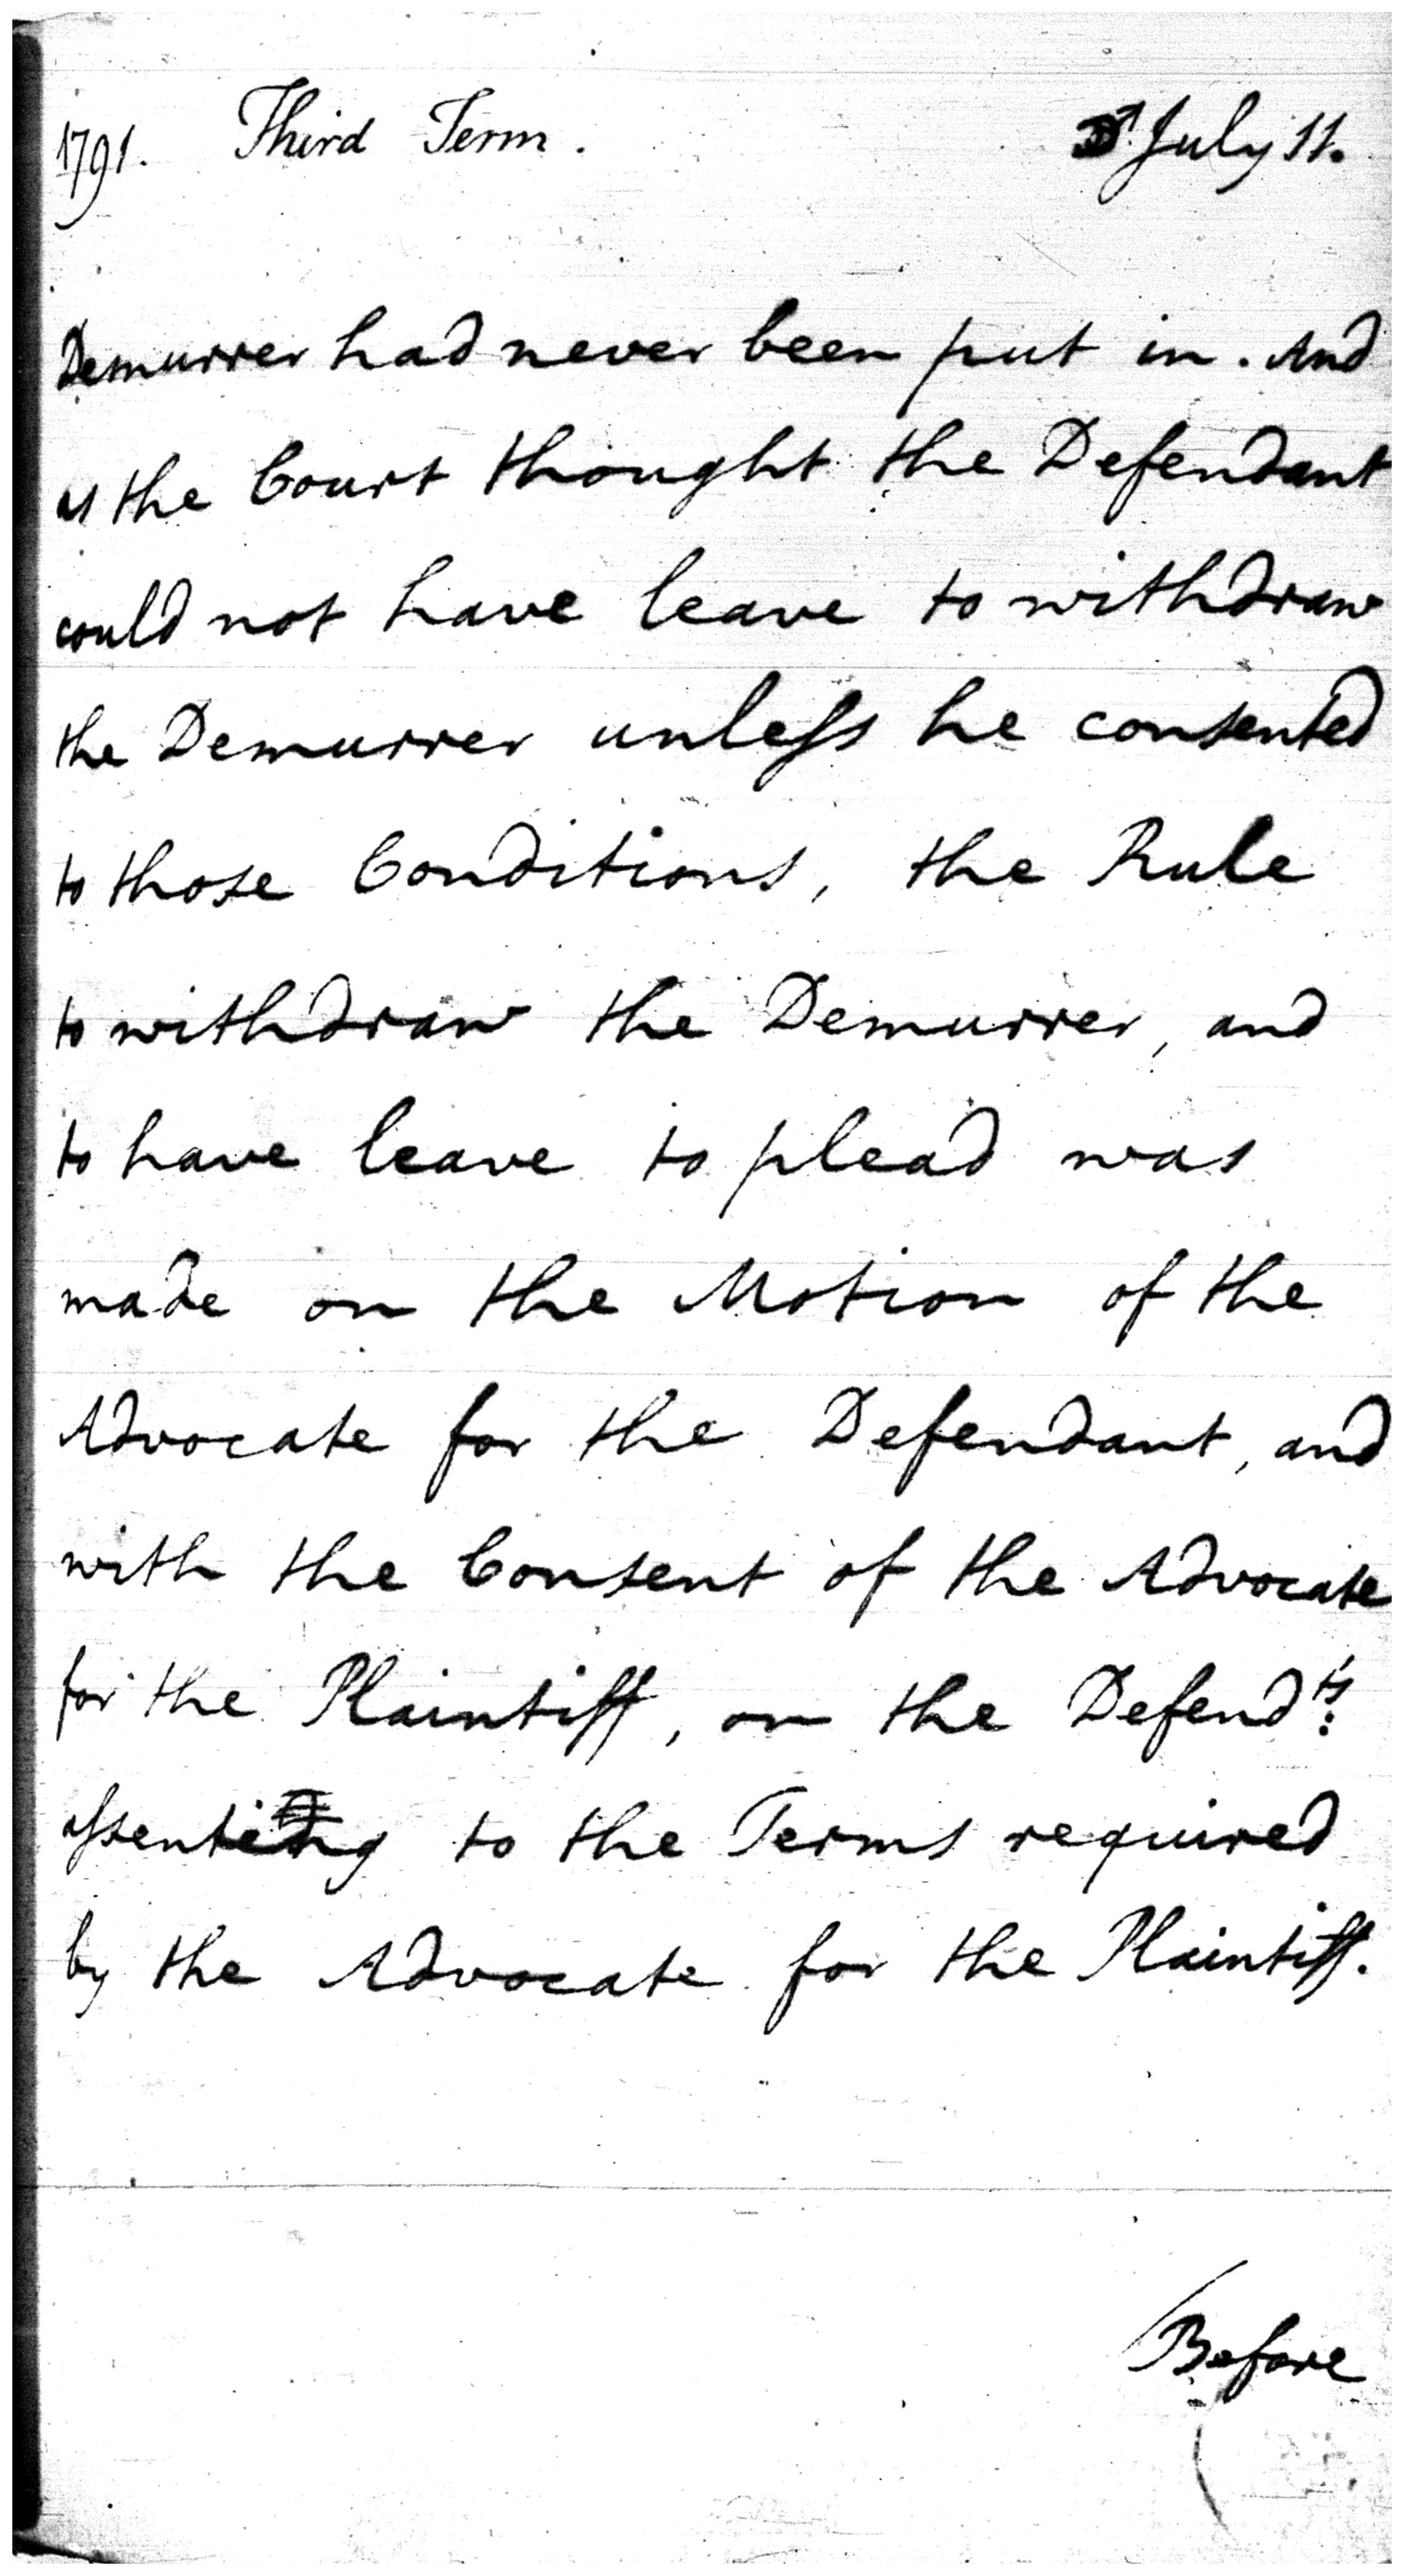 1791. Third Term. July 11.
Demurrer had never been put in. And
as the Court thought the Defendant
could not have leave to withdraw
the Demurrer unleſs he consented
to those Conditions, the Rule
to withdraw the Demurrer, and
to have leave to plead was
made on the Motion of the
Advocate for the Defendant, and
with the Consent of the Advocate
for the Plaintiff, on the Defendts:
aſsenting to the Terms required
by the Advocate for the Plaintiff.
Before